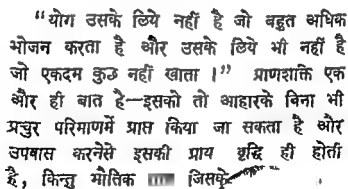 “योग उसके लिये नहीं है जो बहुत अधिक
भोजन करता है और उसके लिये भी नहीं है
जो एकदम कुछ नहीं खाता ।” प्राणशक्ति एक
और ही बात है—इसको तो आहारके बिना भी
प्रचुर परिमाणमें प्राप्त किया जा सकता है और
उपवास करनेसे इसकी प्राय वृद्धि ही होती
है, किन्तु भौतिक जिसके